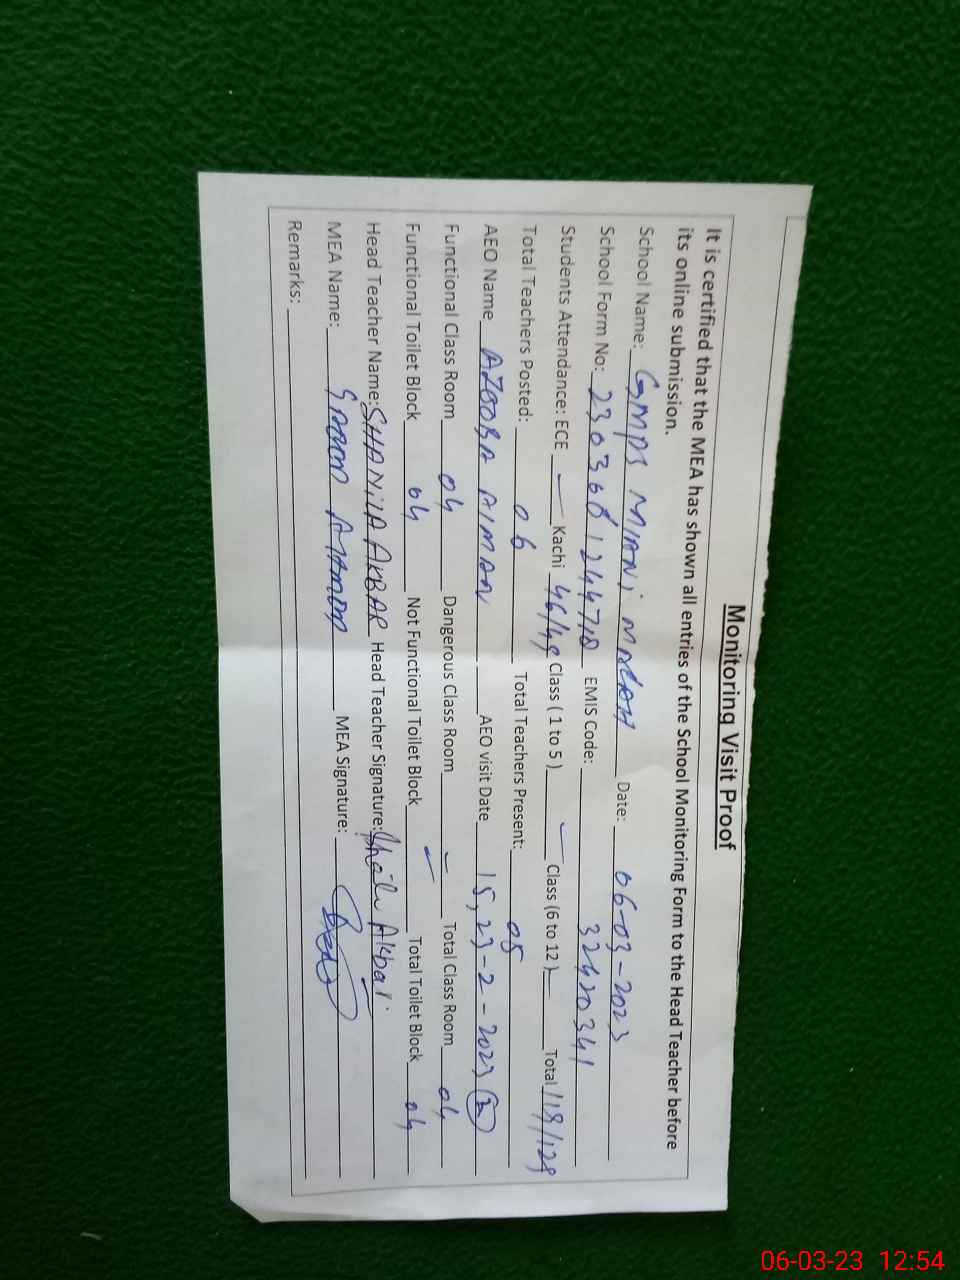 Monitoring Visit Proof
It is certified that the MEA has shown all entries of the School Monitoring Form to the Head Teacher before
its online submission.
School Name: GMPS MIANI Date: 06-03-2023
School Form No: EMIS Code:
Students Attendance: ECE — Kachi 46/49 Class ( 1 to 5 ) — Class (6 to 12 ) Total 118/129
Total Teachers Posted: 06 Total Teachers Present: 05
AEO Name AZOOBA AIMAN AEO visit Date 15, 23-2-2023 (2)
Functional Class Room 04 Dangerous Class Room — Total Class Room 04
Functional Toilet Block 04 Not Functional Toilet Block — Total Toilet Block 04
Head Teacher Name: SHANILA AKBAR Head Teacher Signature: Akbar.
MEA Name: MEA Signature:
Remarks:
06-03-23 12:54